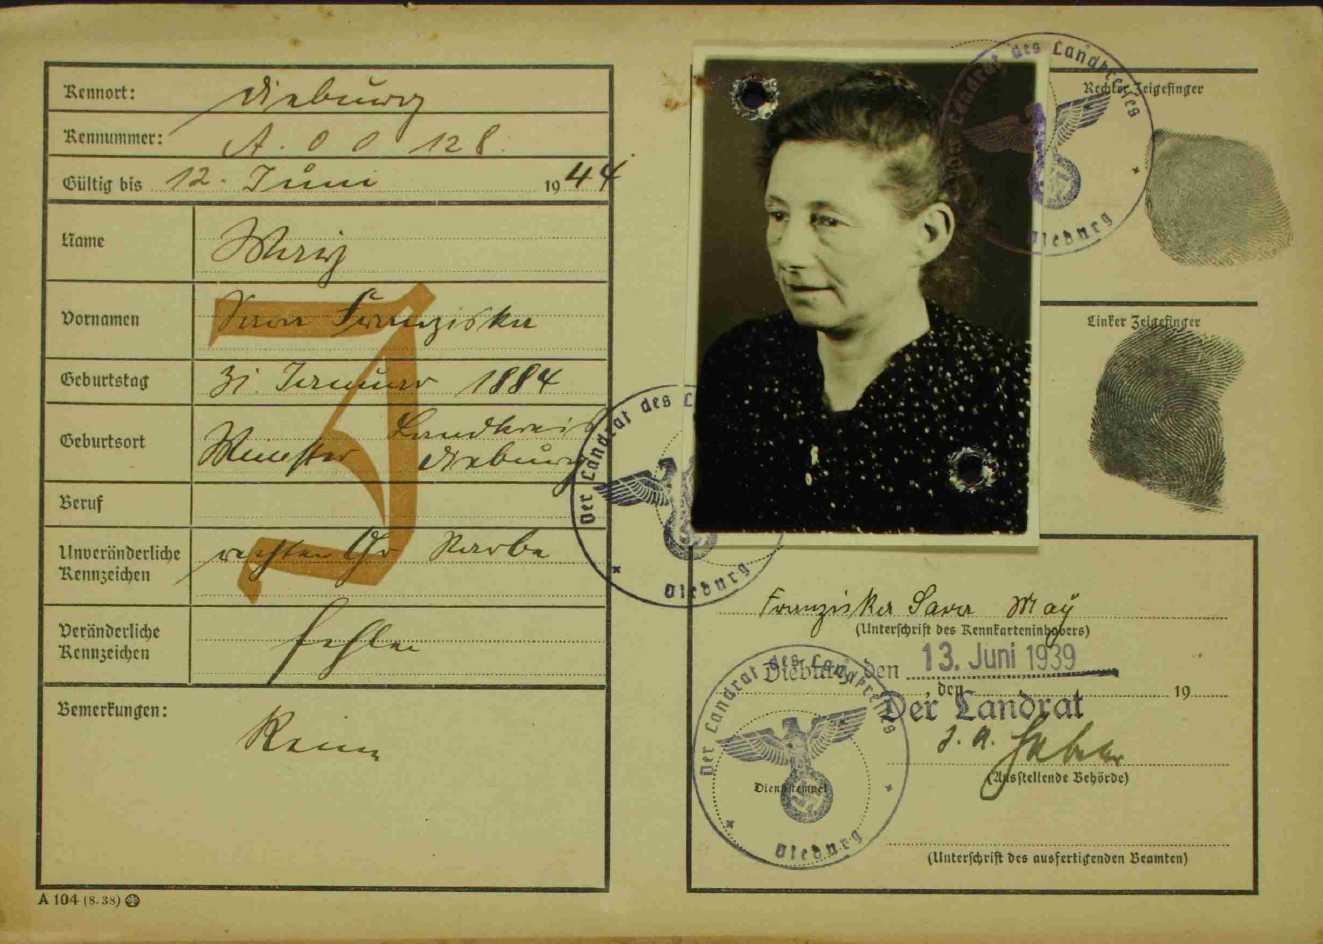 Kennort: Dieburg
Kennummer: A. 00128.
Gültig bis 12. Juni 1944
Name May
Vornamen Sara Franziska
Geburtstag 31. Januar 1884
Geburtsort Landkreis
Münster Dieburg
Beruf
Unveränderliche
Kennzeichen rechten Ohr Narbe
Veränderliche
Kennzeichen fehlen
Bemerkungen: Keine
A 104 (8.38)
Der Landrat des Landkreises
Dieburg
Der Landrat des
Dieburg
Rechter Zeigefinger
Linker Zeigefinger
Franziska Sara May
(Unterschrift des Kennkarteninhabers)
Dieburg den 13. Juni 1939
, den 19
Der Landrat
J. A.
(Ausstellende Behörde)
Der Landrat des Landkreises
Dienststempel
Dieburg
(Unterschrift des ausfertigenden Beamten)
J